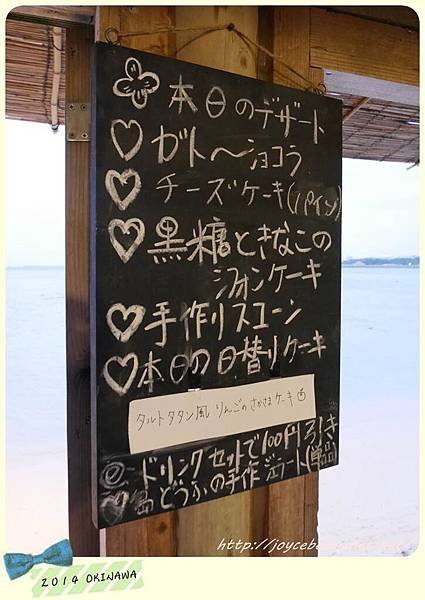 本日のデザート
ガトーショコラ
チーズケーキ(パイン)
黒糖ときなこの
シフォンケーキ
手作りスコーン
本日の日替りケーキ
タルトタタン風 りんごのさかさまケーキ
ドリンクセットで100円引き
島どうふの手作ジェラート(単品)
http://joyceb
2014 OKINAWA